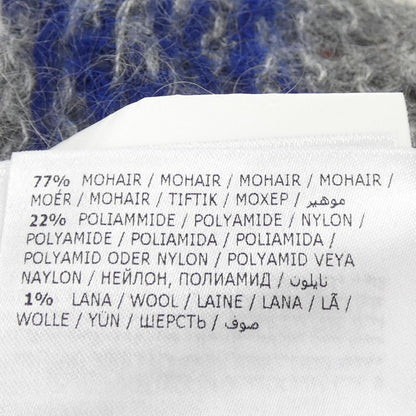 77% MOHAIR / MOHAIR / MOHAIR / MOHAIR /
MOÉR / MOHAIR / TIFTIK / МОХЕР / موهير
22% POLIAMMIDE / POLYAMIDE / NYLON /
POLYAMIDE / POLIAMIDA / POLIAMIDA /
POLYAMID ODER NYLON / POLYAMID VEYA
NAYLON / НЕЙЛОН, ПОЛИАМИД / نايلون
1% LANA / WOOL / LAINE / LANA / LÃ /
WOLLE / YÜN / ШЕРСТЬ / صوف